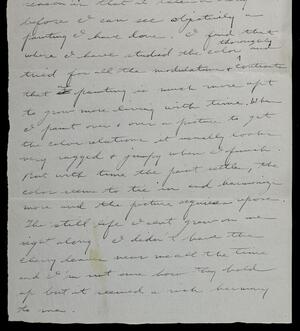 reason in that it takes a long
before I can see objectively a
painting I have done. I find that
where I have studied the color thoroughly and
tried for all the modulation & contrasts
that a painting is much more apt
to grow more living with time. When
I paint over & over a picture to get
the color relations it usually looks
very ragged & jumpy when I finish.
But with time the paint settles, the
color seems to tie in and harmonize
more and the picture acquires repose.
The still life I sent grows on me
right along. I didn't have the
cherry leaves near me all the time
and I'm not sure how they hold
up but it seemed a rich harmony
to me.